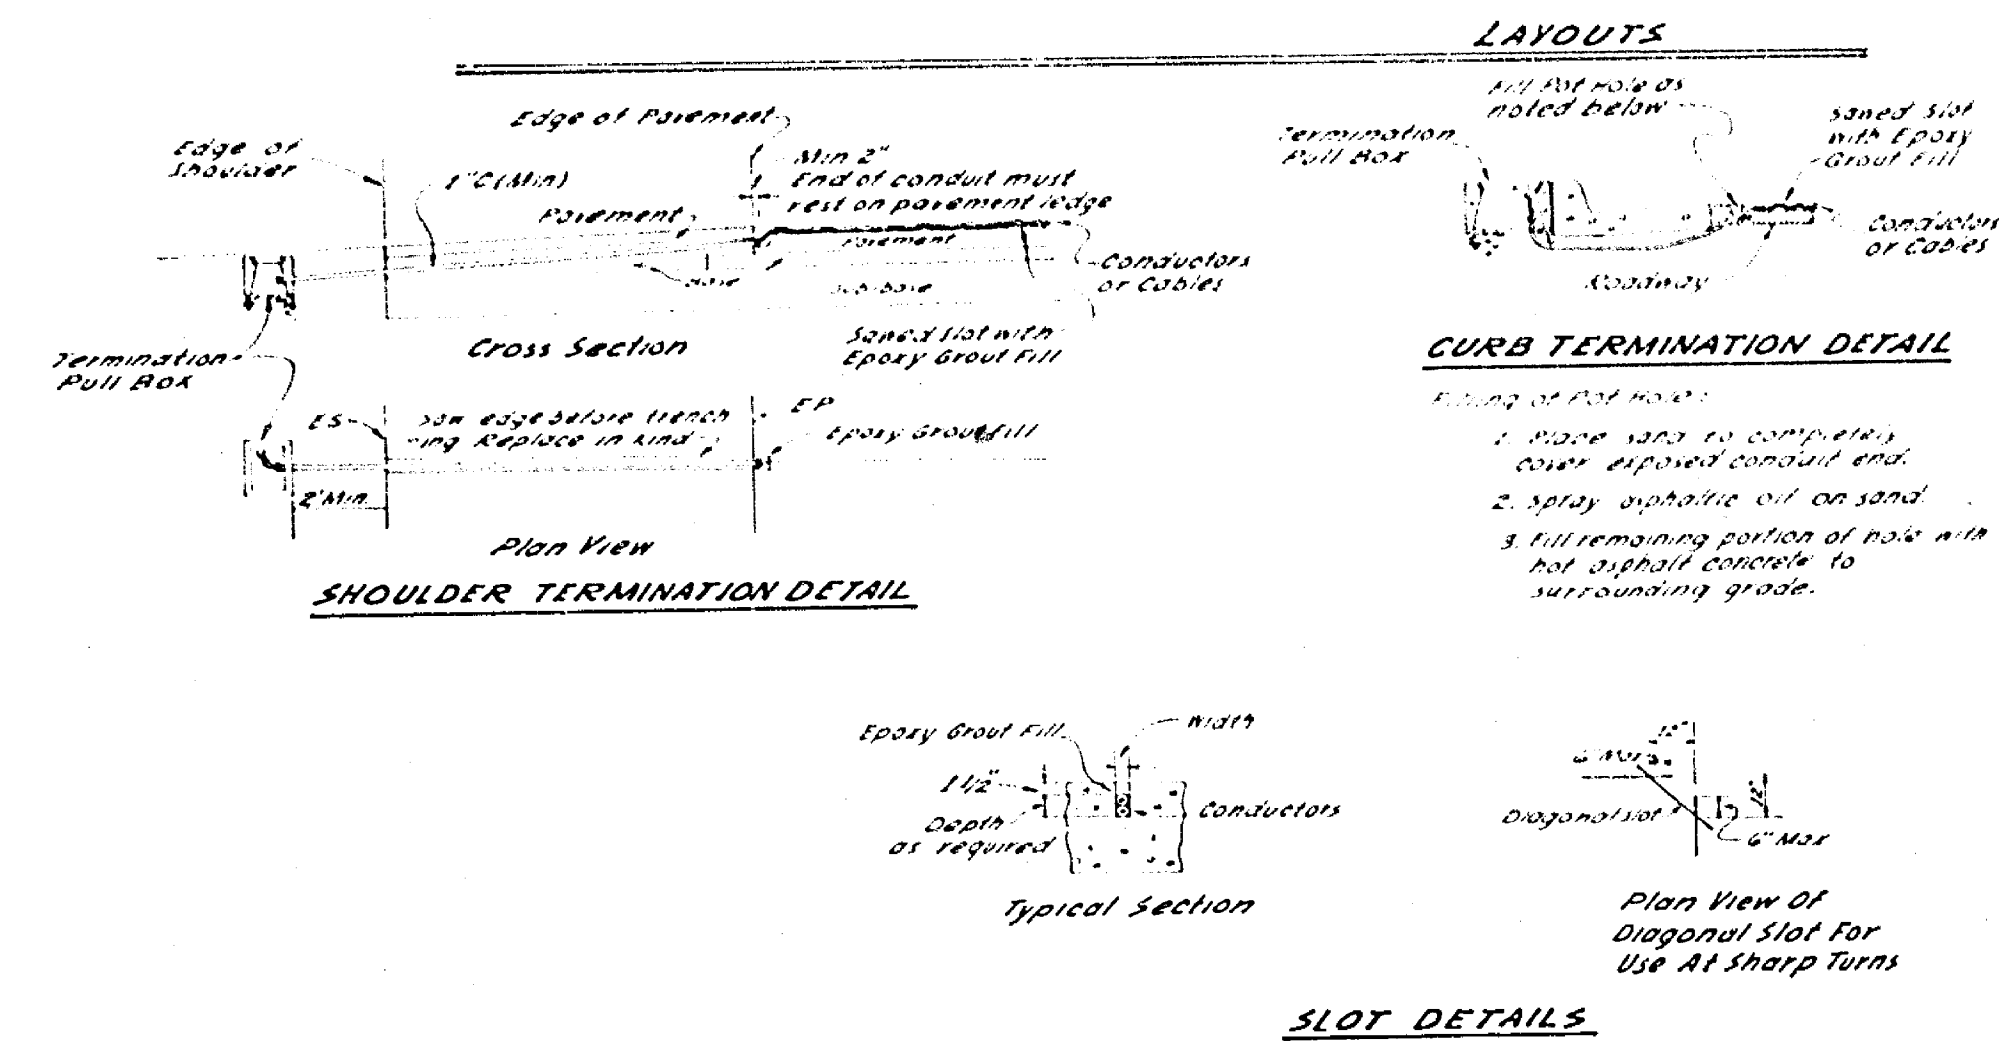 LAYOUTS
Edge of Pavement
Edge of
Shoulder
1"C(Min)
Min 2"
End of conduit must
rest on pavement ledge
Pavement
Pavement
Base
Sub-base
Conductors
or Cables
Cross Section
Sawed Slot with
Epoxy Grout Fill
Termination
Pull Box
ES
Saw edge before trench
-ing Replace in kind
EP
Epoxy Grout Fill
2' Min.
Plan View
SHOULDER TERMINATION DETAIL
Fill Pot Hole as
noted below
Termination
Pull Box
Sawed Slot
with Epoxy
Grout Fill
Conductors
or Cables
Roadway
CURB TERMINATION DETAIL
Filling of Pot Hole:
1. Place sand to completely
cover exposed conduit end.
2. Spray asphaltic oil on sand.
3. Fill remaining portion of hole with
hot asphalt concrete to
surrounding grade.
Epoxy Grout Fill
Width
1 1/2"
Depth
as required
Conductors
Typical Section
12"
6" Max
Diagonal slot
12"
6" Max
Plan View Of
Diagonal Slot For
Use At Sharp Turns
SLOT DETAILS